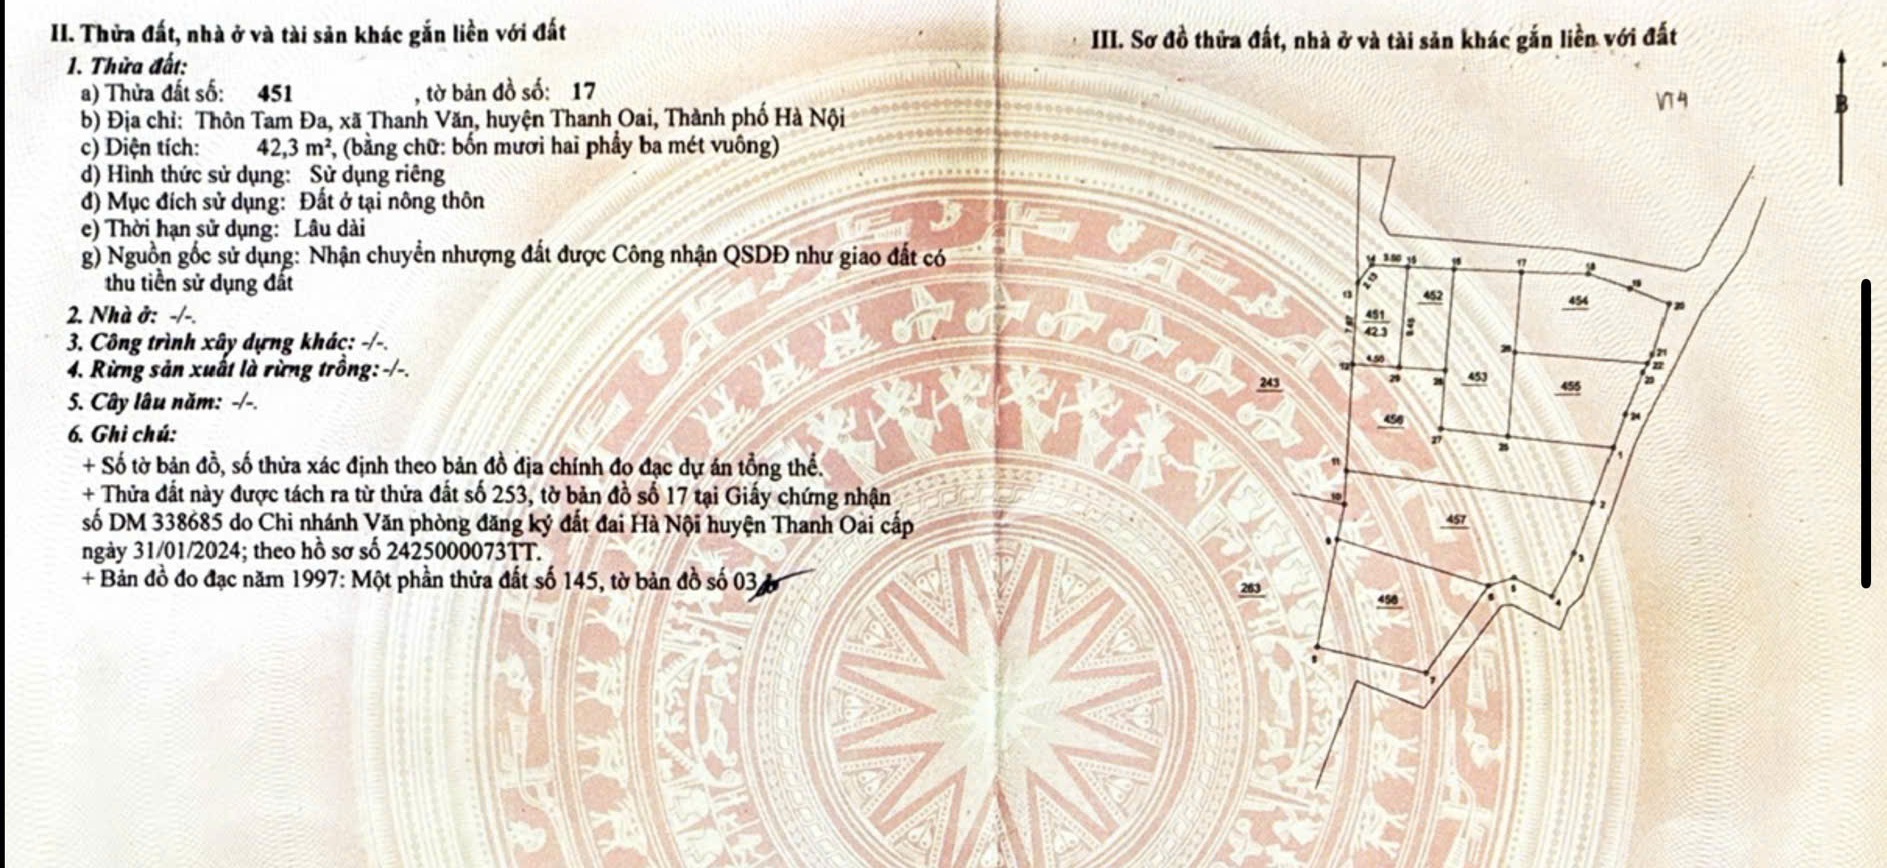 II. Thửa đất, nhà ở và tài sản khác gắn liền với đất
1. Thửa đất:
a) Thửa đất số: 451 , tờ bản đồ số: 17
b) Địa chỉ: Thôn Tam Đa, xã Thanh Văn, huyện Thanh Oai, Thành phố Hà Nội
c) Diện tích: 42,3 m², (bằng chữ: bốn mươi hai phẩy ba mét vuông)
d) Hình thức sử dụng: Sử dụng riêng
đ) Mục đích sử dụng: Đất ở tại nông thôn
e) Thời hạn sử dụng: Lâu dài
g) Nguồn gốc sử dụng: Nhận chuyển nhượng đất được Công nhận QSDĐ như giao đất có
thu tiền sử dụng đất
2. Nhà ở: -/-.
3. Công trình xây dựng khác: -/-.
4. Rừng sản xuất là rừng trồng: -/-.
5. Cây lâu năm: -/-.
6. Ghi chú:
+ Số tờ bản đồ, số thửa xác định theo bản đồ địa chính đo đạc dự án tổng thể.
+ Thửa đất này được tách ra từ thửa đất số 253, tờ bản đồ số 17 tại Giấy chứng nhận
số DM 338685 do Chi nhánh Văn phòng đăng ký đất đai Hà Nội huyện Thanh Oai cấp
ngày 31/01/2024; theo hồ sơ số 2425000073TT.
+ Bản đồ đo đạc năm 1997: Một phần thửa đất số 145, tờ bản đồ số 03
III. Sơ đồ thửa đất, nhà ở và tài sản khác gắn liền với đất
VT4
B
14 3.50 15 16 17 18
19
2.13
13 452 454 20
451
7.87 42.3 9.45
26 21
22
12 4.50 29 28 453 455 23
243
456 24
27 25 1
11
10 2
457
9 3
263 458 6 5 4
8
7